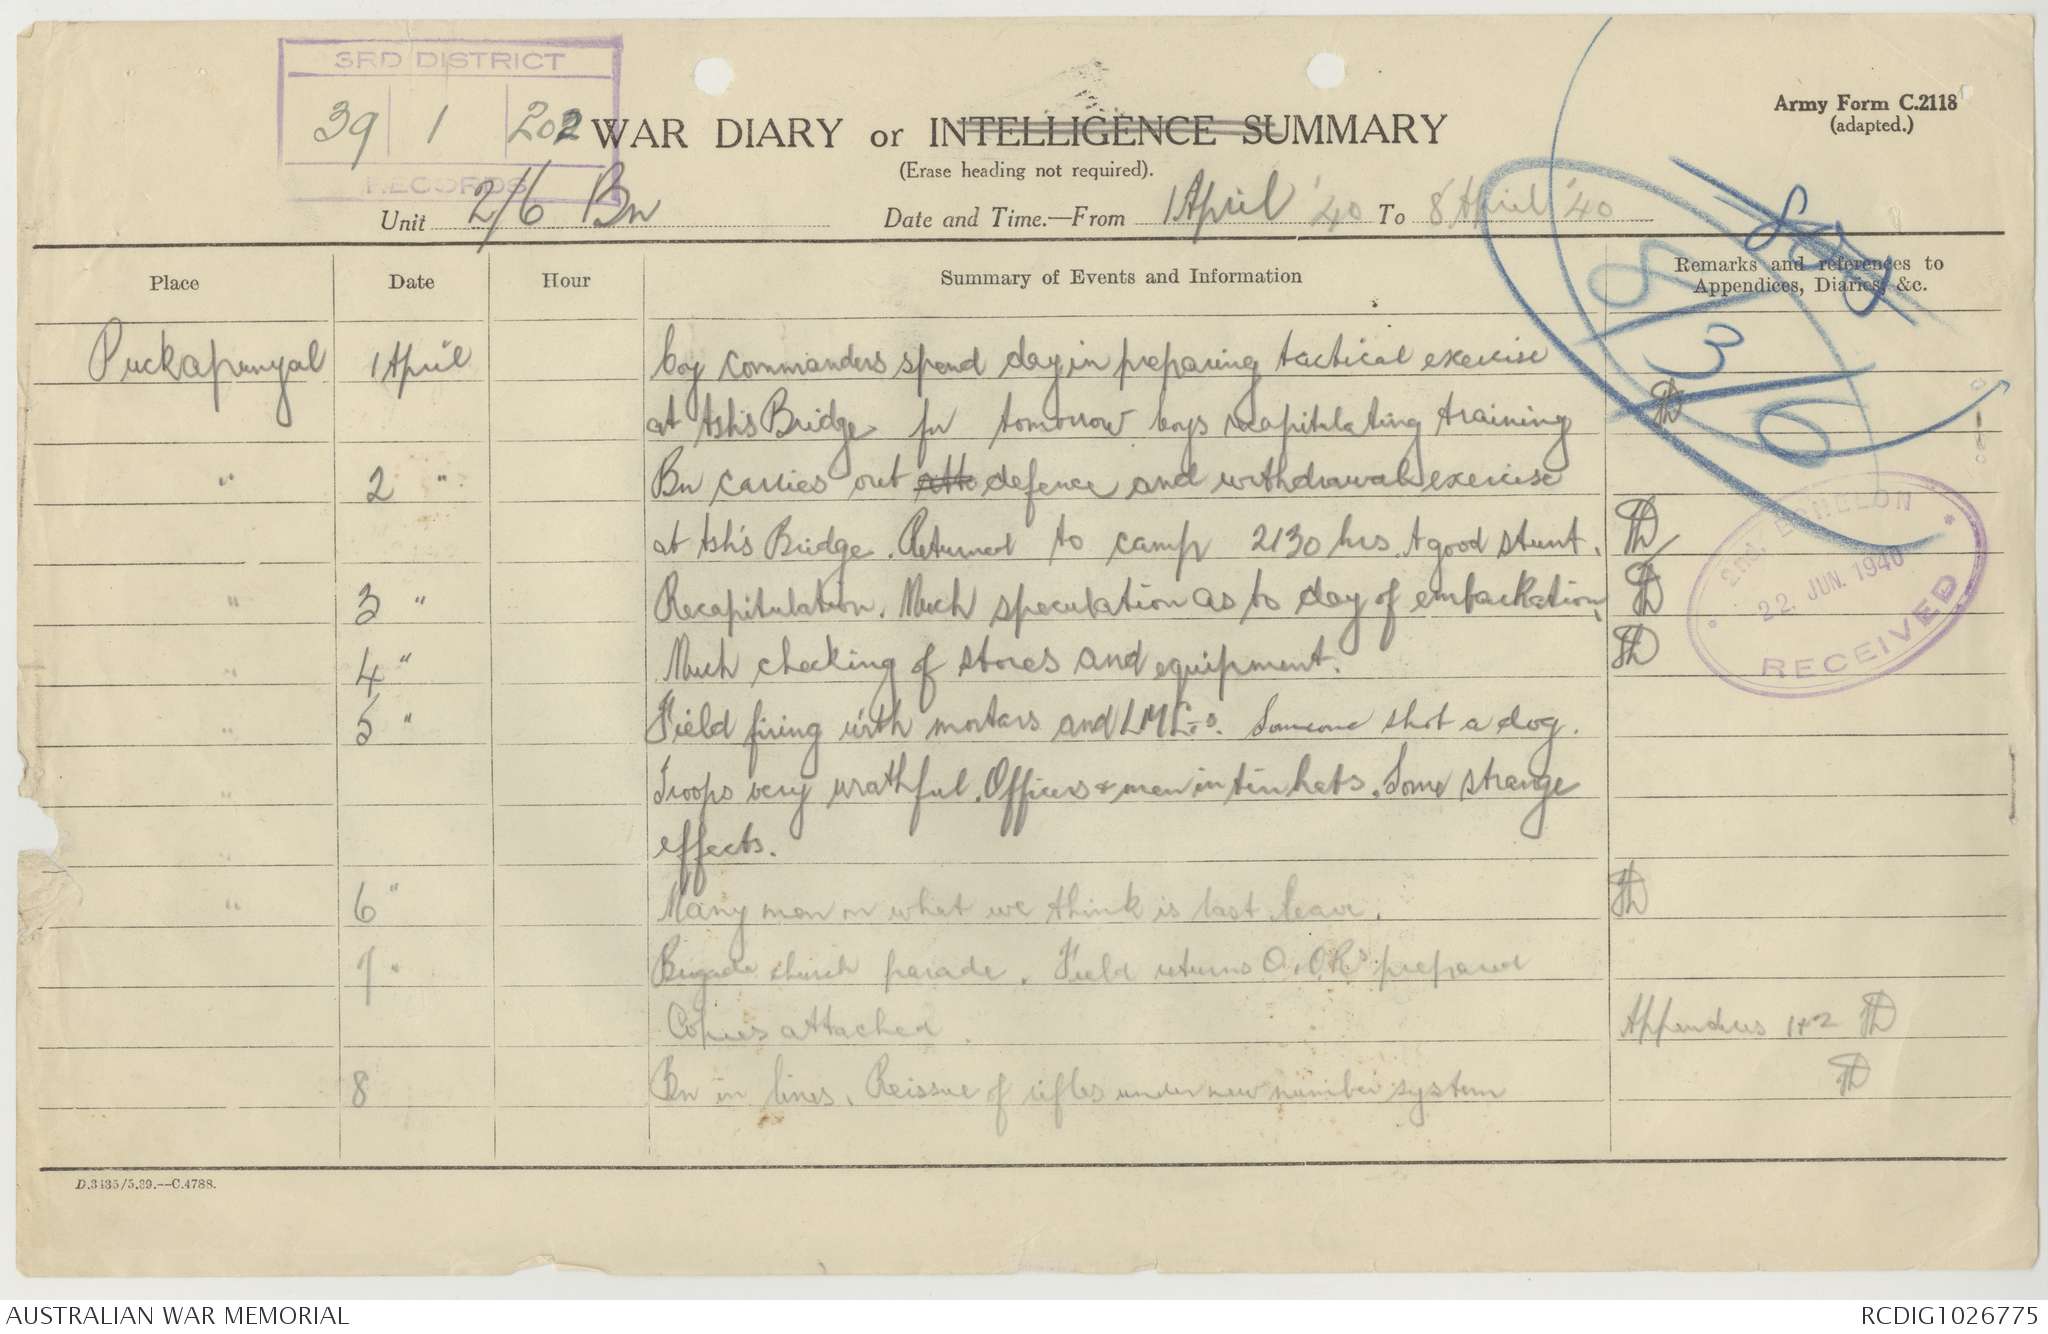 3RD DISTRICT
39 1 202
RECORDS
WAR DIARY or INTELLIGENCE SUMMARY
(Erase heading not required).
Army Form C.2118
(adapted.)
Unit 2/6 Bn
Date and Time.—From 1 April '40 To 8 April '40
Place Date Hour Summary of Events and Information Remarks and references to
Appendices, Diaries, &c.
8/3/6
Puckapunyal 1 April Coy commanders spend day in preparing tactical exercise
at Ash's Bridge for tomorrow Coys recapitulating training
" 2 " Bn carries out atta defence and withdrawal exercise
at Ash's Bridge. Returned to camp 2130 hrs. A good stunt.
" 3 " Recapitulation. Much speculation as to day of embarkation
" 4 " Much checking of stores and equipment.
" 5 " Field firing with mortars and LMGs. Someone shot a dog.
" Troops very wrathful. Officers & men in tin hats. Some strange
" effects.
" 6 " Many men on what we think is last leave.
7 " Brigade church parade. Field returns O. ORs prepared
Copies attached. Appendices 1+2
8 Bn in lines. Reissue of rifles under new number system
2ND. ECHELON
22. JUN. 1940
RECEIVED
D.3435/5.39.—C.4788.
AUSTRALIAN WAR MEMORIAL
RCDIG1026775